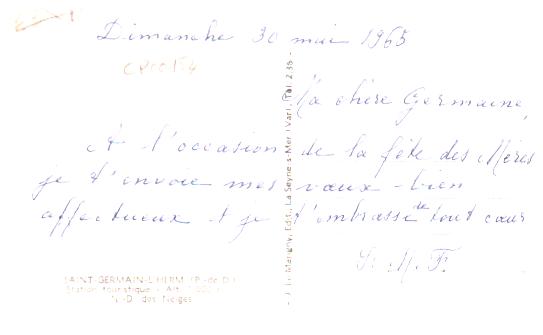 Dimanche 30 mai 1965
Ma chère Germaine,
A l'occasion de la fête des Mères
je t'envoie mes vœux bien
affectueux et je t'embrasse de tout cœur
S. M. F.
SAINT-GERMAIN-L'HERM (P.-de-D.)
Station touristique - Alt. 1.000 m
N.-D. des Neiges
Marigny, Edit., La Seyne-s-Mer (Var), Tél. 2.35 -